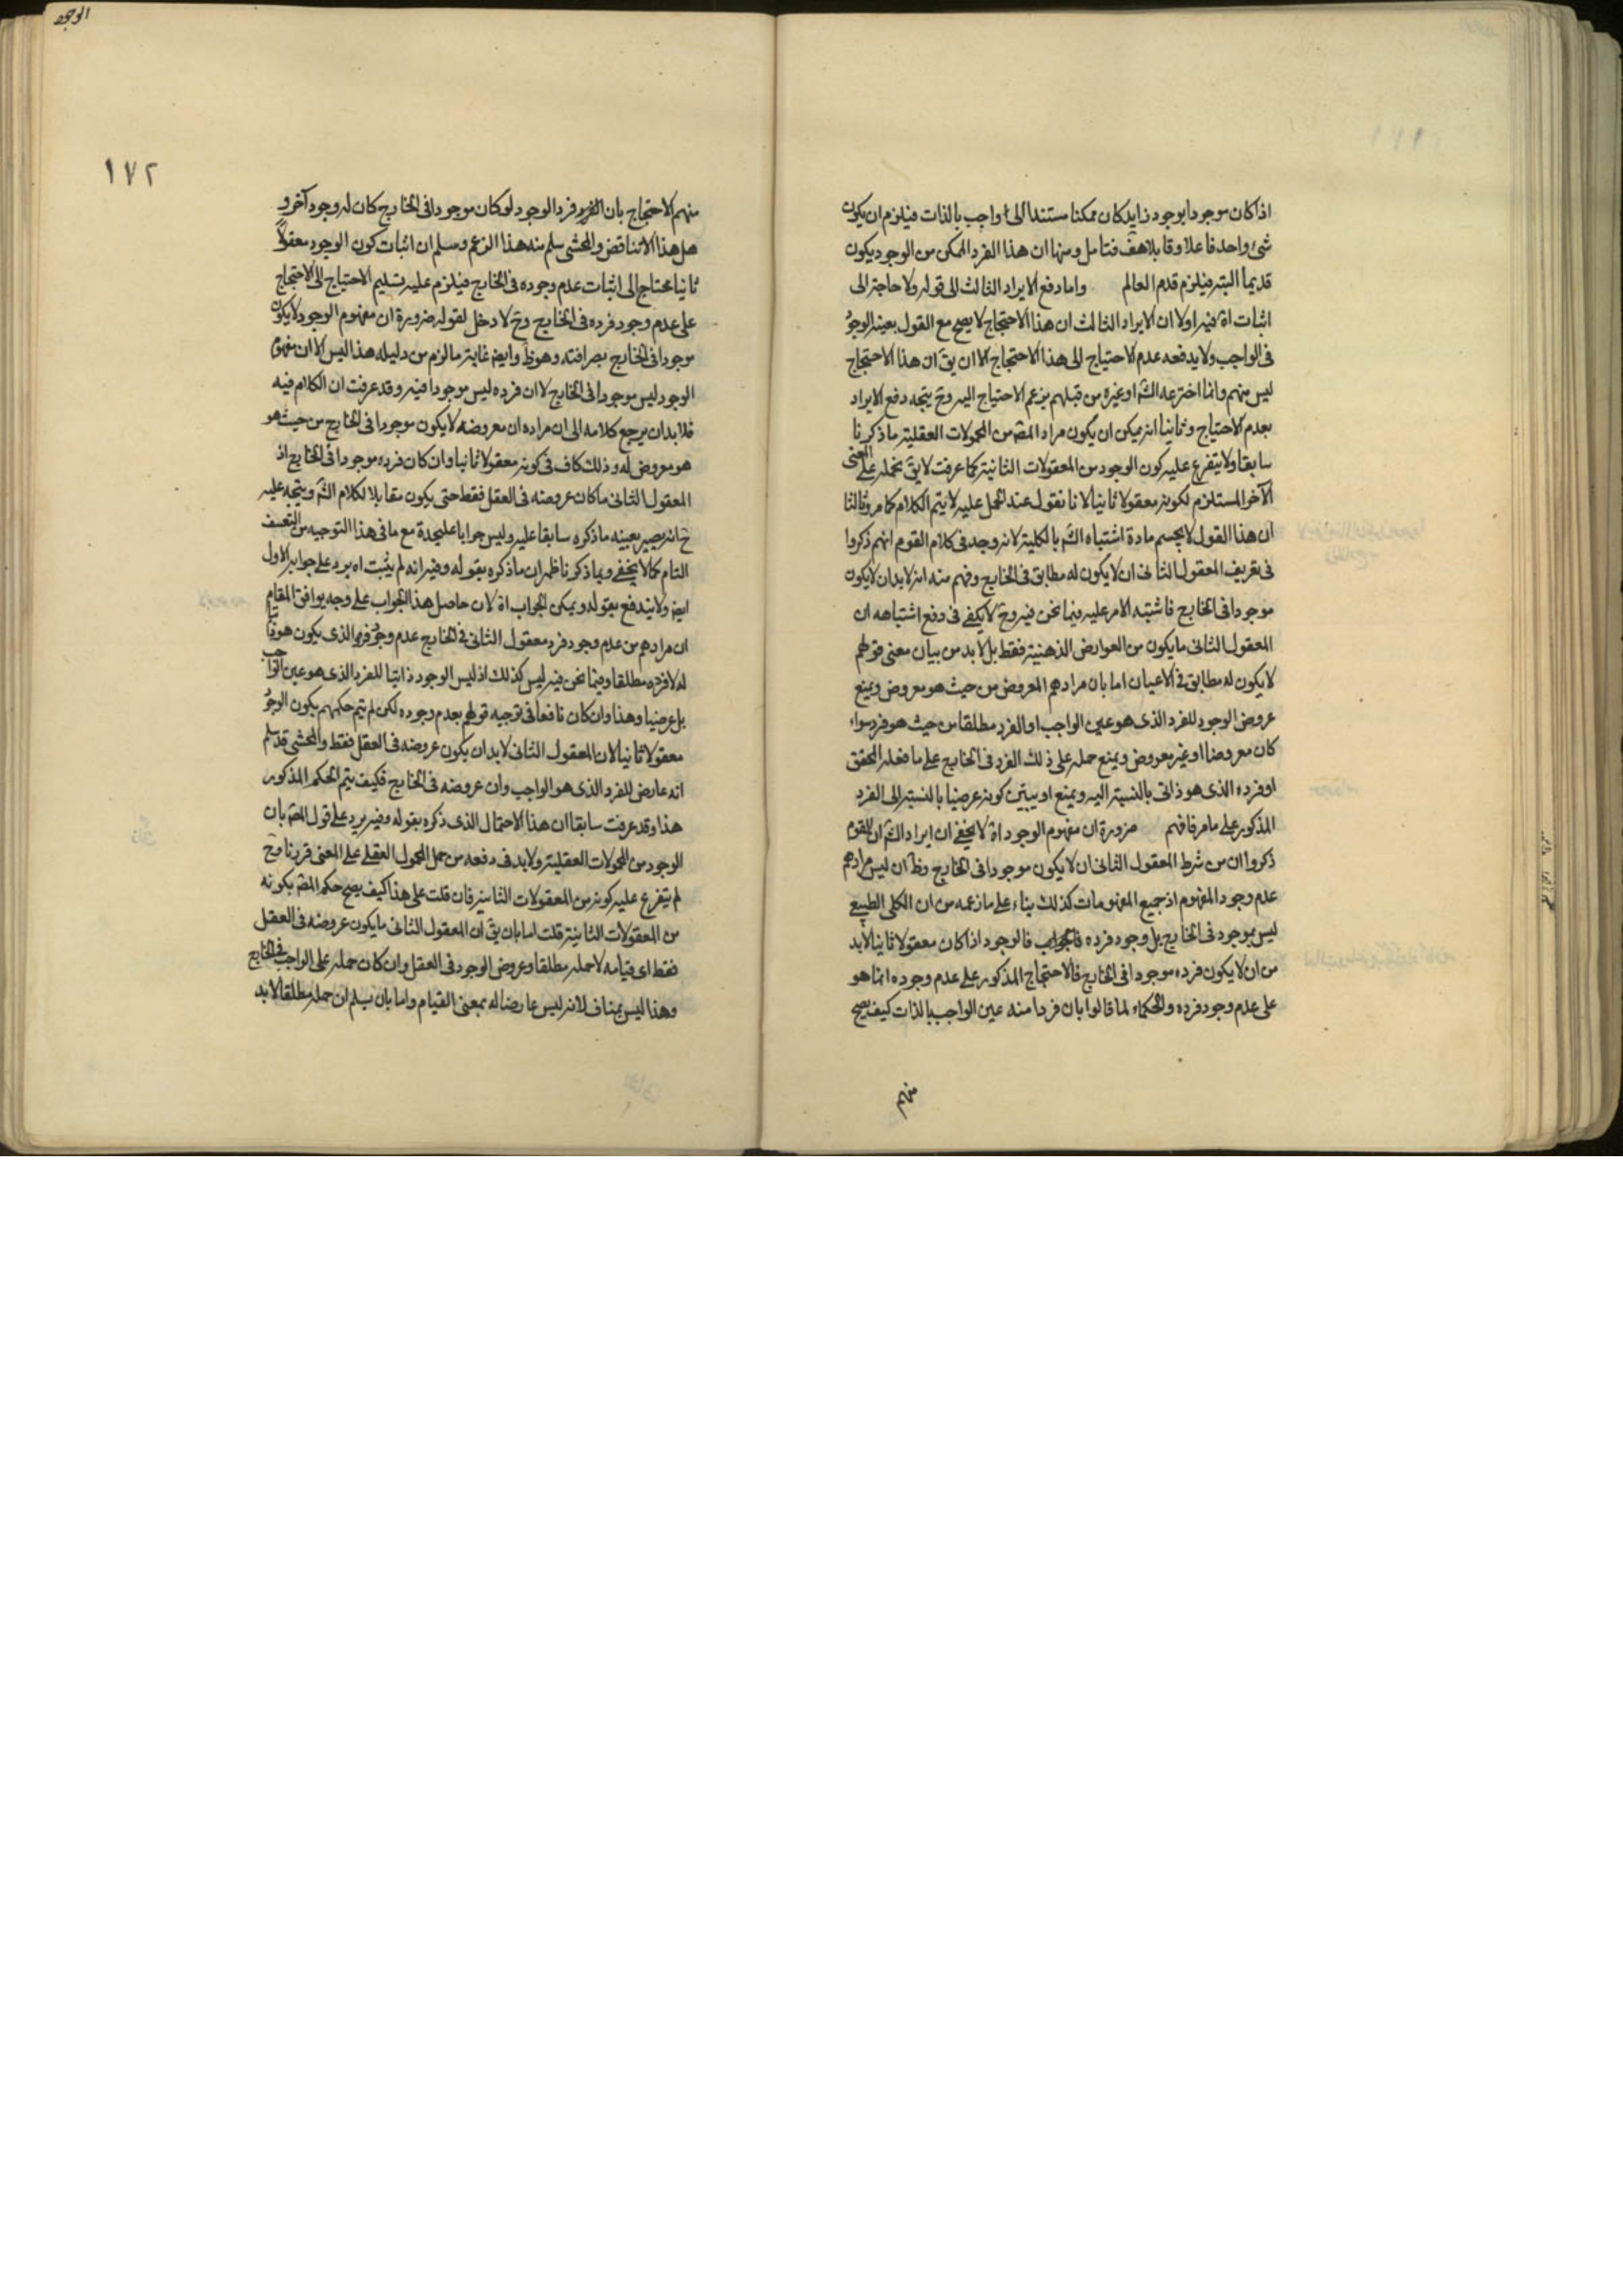 اذا كان موجودا بوجود زايد كان ممكنا مستندا الى واجب بالذات فيلزم ان يكون
شئ واحد فاعلا وقابلا هف فتامل ومنها ان هذا الفرد الممكن من الوجود يكون
قديما البتة فيلزم قدم العالم واما دفع الايراد الثالث الى قوله ولا حاجة الى
اثبات اه فيه اولا ان الايراد الثالث ان هذا الاحتجاج لا يصح مع القول بعينية الوجود
فى الواجب ولا يدفعه عدم الاحتياج الى هذا الاحتجاج الا ان يق ان هذا الاحتجاج
ليس منهم وانما اخترعه الش او غيره من قبلهم بزعم الاحتياج اليه وح يتجه دفع الايراد
بعدم الاحتياج وثانيا انه يمكن ان يكون مراد المص من المحمولات العقلية ما ذكرنا
سابقا ولا يتفرع عليه كون الوجود من المعقولات الثانية كما عرفت لا يق نحمله على المعنى
الآخر المستلزم لكونه معقولا ثانيا لانا نقول عند الحمل عليه لا يتم الكلام كما مر وثالثا
ان هذا القول لا يحسم مادة اشتباه الش بالكلية لانه وجد فى كلام القوم انهم ذكروا
فى تعريف المعقول الثانى ان لا يكون له مطابق فى الخارج وفهم منه انه لا بد ان لا يكون
موجودا فى الخارج فاشتبه الامر عليه فيما نحن فيه وح لا يكفى فى دفع اشتباهه ان
المعقول الثانى ما يكون من العوارض الذهنية فقط بل لا بد من بيان معنى قولهم
لا يكون له مطابق فى الاعيان اما بان مرادهم المعروض من حيث هو معروض ويمنع
عروض الوجود للفرد الذى هو عين الواجب او الفرد مطلقا من حيث هو فرد سواء
كان معروضا او غير معروض ويمنع حمله على ذلك الفرد فى الخارج على ما فعله المحقق
او فرده الذى هو ذاتى بالنسبة اليه ويمنع او يبين كونه عرضيا بالنسبة الى الفرد
المذكور على ما مر فافهم ضرورة ان مفهوم الوجود اه لا يخفى ان ايراد الش ان القوم
ذكروا ان من شرط المعقول الثانى ان لا يكون موجودا فى الخارج وظ ان ليس مرادهم
عدم وجود المفهوم اذ جميع المفهومات كذلك بناء على ما زعمه من ان الكلى الطبيعى
ليس بموجود فى الخارج بل وجود فرده فالوجود اذا كان معقولا ثانيا لا بد
من ان لا يكون فرده موجودا فى الخارج فالاحتجاج المذكور على عدم وجوده انما هو
على عدم وجود فرده والحكماء لما قالوا بان فردا منه عين الواجب بالذات كيف يصح
منهم
الوجود
١٧٢
منهم الاحتجاج بان فرد الوجود لو كان موجودا فى الخارج كان له وجود آخر و
هل هذا الا تناقض والمحشى سلم منه هذا الزعم وسلم ان اثبات كون الوجود معقولا
ثانيا محتاج الى اثبات عدم وجوده فى الخارج فيلزم عليه تسليم الاحتياج الى الاحتجاج
على عدم وجود فرده فى الخارج وح لا دخل لقوله ضرورة ان مفهوم الوجود لا يكون
موجودا فى الخارج بصرافته وهو ظ وايض غاية ما لزم من دليله هذا ليس الا ان مفهوم
الوجود ليس موجودا فى الخارج لا ان فرده ليس موجودا فيه وقد عرفت ان الكلام فيه
فلا بد ان يرجع كلامه الى ان مراده ان معروضه لا يكون موجودا فى الخارج من حيث هو
هو معروض له وذلك كاف فى كونه معقولا ثانيا وان كان فرده موجودا فى الخارج اذ
المعقول الثانى ما كان عروضه فى العقل فقط حتى يكون مقابلا لكلام الش ويتجه عليه
ح انه يصير بعينه ما ذكره سابقا عليه وليس جوابا عليحدة مع ما فى هذا التوجيه من التعسف
التام كما لا يخفى وبما ذكرنا ظهر ان ما ذكره بقوله وفيه انه لم يثبت اه يرد على جوابه الاول
ايض ولا يندفع بقوله ويمكن الجواب اه لان حاصل هذا الجواب على وجه يوافق المقام
ان مرادهم من عدم وجود فرد معقول الثانى فى الخارج عدم وجود فرده الذى يكون هو ذاتيا
له لا فرده مطلقا وفيما نحن فيه ليس كذلك اذ ليس الوجود ذاتيا للفرد الذى هو عين الواجب
بل عرضيا وهذا وان كان نافعا فى توجيه قولهم بعدم وجوده لكن لم يتم حكمهم بكون الوجود
معقولا ثانيا لان المعقول الثانى لا بد ان يكون عروضه فى العقل فقط والمحشى قد سلم
انه عارض للفرد الذى هو الواجب وان عروضه فى الخارج فكيف يتم الحكم المذكور
هذا وقد عرفت سابقا ان هذا الاحتمال الذى ذكره بقوله وفيه يرد على قول المص بان
الوجود من المحمولات العقلية ولا بد فى دفعه من حمل المحمول العقلى على المعنى قررنا وح
لم يتفرع عليه كونه من المعقولات الثانية فان قلت على هذا كيف يصح حكم المص بكونه
من المعقولات الثانية قلت اما بان يق ان المعقول الثانى ما يكون عروضه فى العقل
فقط اى قيامه لا حمله مطلقا وعروض الوجود فى العقل وان كان حمله على الواجب فى الخارج
وهذا ليس بمناف لانه ليس عارضا له بمعنى القيام واما بان يسلم ان حمله مطلقا لا بد